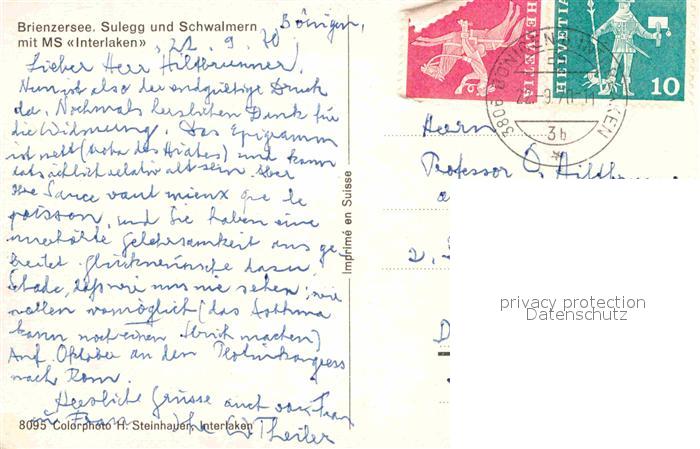 Brienzersee. Sulegg und Schwalmern
mit MS «Interlaken»
Bönigen,
22. 9. 70
Lieber Herr Hiltbrunner,
Nun ist also der endgültige Druck
da. Nochmals herzlichen Dank für
die Widmung. Das Epigramm
ist nett (trotz des Hiates) und kann
tatsächlich relativ alt sein. Aber
Sauce vaut mieux que le
poisson, und Sie haben eine
unerhörte Gelehrsamkeit ausge
breitet. Glückwünsche dazu
Schade, dass wir uns nie sehen; wir
wollen womöglich (das Asthma
kann noch einen Strich machen)
Anf. Oktober an den Plotinkongress
nach Rom.
Herzliche Grüsse auch von Frau
Ihr W Theiler
8095 Colorphoto H. Steinhauer, Interlaken
Imprimé en Suisse
HELVETIA
HELVETIA
10
3800
INTERLAKEN
3b
Herrn
Professor O. Hiltbr
privacy protection
Datenschutz